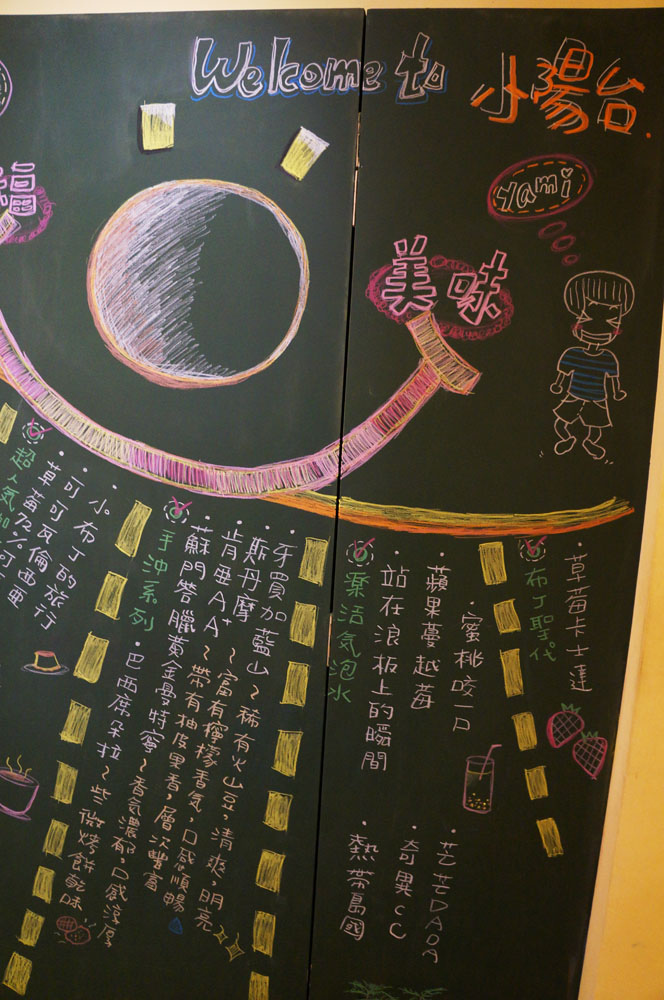 Welcome to 小陽台.
Yami
美味
福
草莓卡士達
布丁聖代
・蜜桃咬一口
・蘋果蔓越莓
・站在浪板上的瞬間
・芒芒DADA
・奇異CC
・熱帶島國
樂活氣泡水
・牙買加藍山~稀有火山豆,清爽,明亮
・斯丹摩~富有檸檬香氣,口感順暢
・肯亞AA+~帶有柚皮果香,層次豐富
・蘇門答臘黃金曼特寧~香氣濃郁,口感淳厚
・巴西席朵拉~些微烤餅乾味
手沖系列
・小布丁的旅行
・可可瓦倫西亞
・草莓72%可可
超人氣